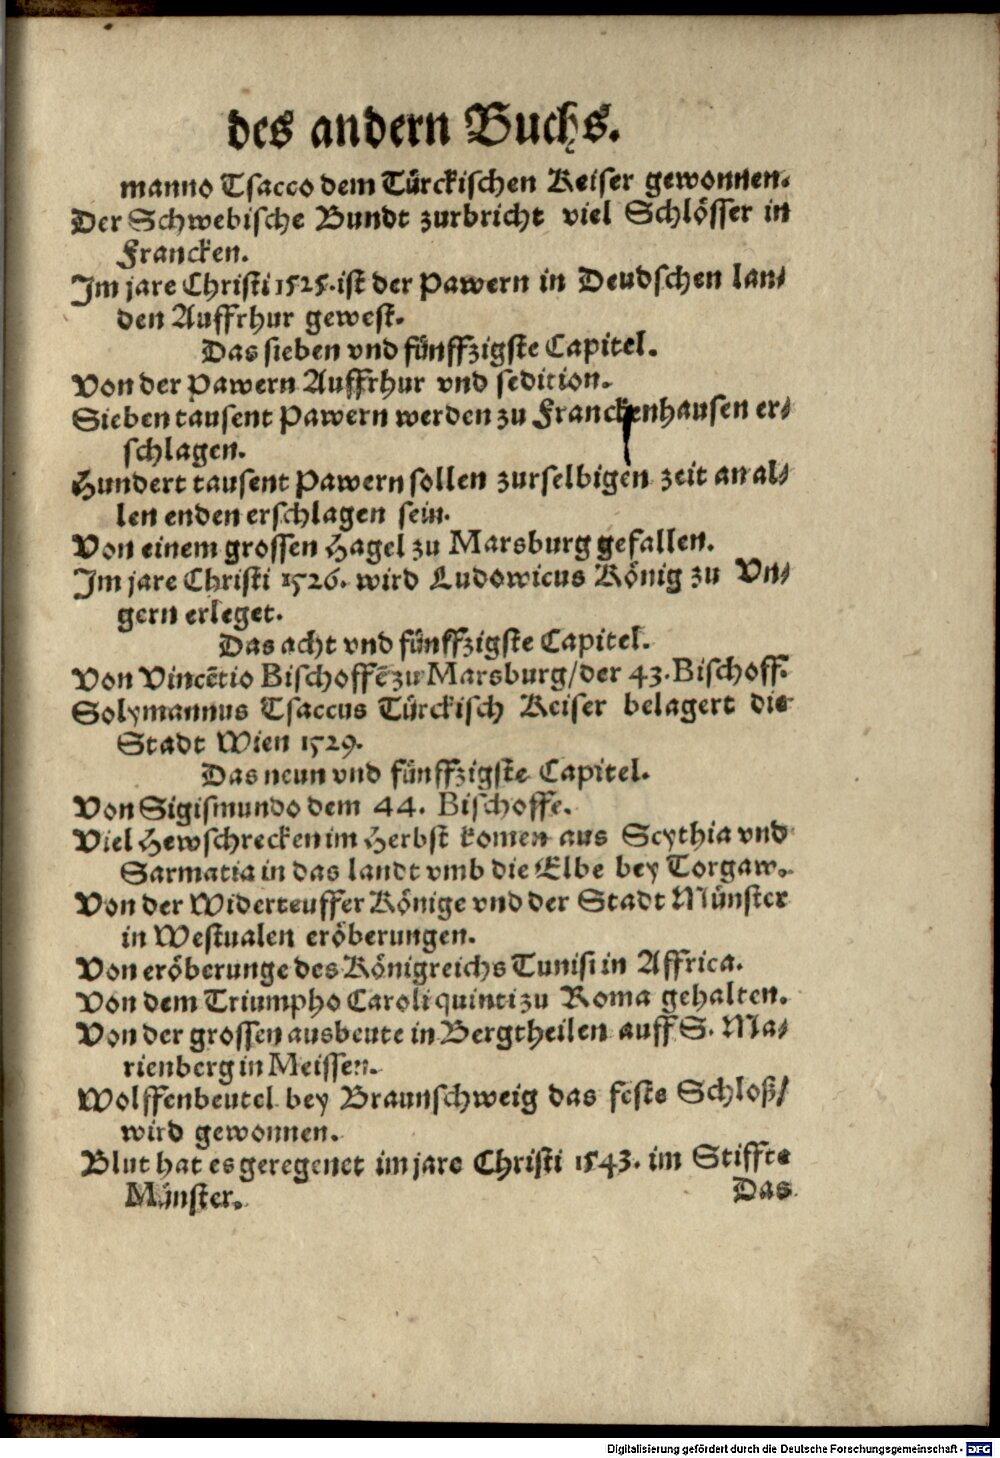 des andern Buchs.
manno Tsacco dem Türckischen Keiser gewonnen.
Der Schwebische Bundt zurbricht viel Schlösser in
Francken.
Im jare Christi 1525. ist der Pawern in Deudschen lan⸗
den Auffrhur gewest.
Das sieben vnd fünffzigste Capitel.
Von der Pawern Auffrhur vnd sedition.
Sieben tausent Pawern werden zu Franckenhausen er⸗
schlagen.
Hundert tausent Pawern sollen zurselbigen zeit an al⸗
len enden erschlagen sein.
Von einem grossen Hagel zu Marsburg gefallen.
Im jare Christi 1526. wird Ludowicus König zu Vn⸗
gern erleget.
Das acht vnd fünffzigste Capitel.
Von Vincētio Bischoffē zu Marsburg/der 43. Bischoff.
Solymannus Tsaccus Türckisch Keiser belagert die
Stadt Wien 1529.
Das neun vnd fünffzigste Capitel.
Von Sigismundo dem 44. Bischoffe.
Viel Hewschrecken im Herbst komen aus Scythia vnd
Sarmatia in das landt vmb die Elbe bey Torgaw.
Von der Widerteuffer Könige vnd der Stadt Münster
in Westualen eröberungen.
Von eröberunge des Königreichs Tunisi in Affrica.
Von dem Triumpho Caroli quinti zu Roma gehalten.
Von der grossen ausbeute in Bergtheilen auff S. Ma⸗
rienberg in Meissen.
Wolffenbeutel bey Braunschweig das feste Schloß/
wird gewonnen.
Blut hat es geregenet im jare Christi 1543. im Stiffte
Münster.
Das
Digitalisierung gefördert durch die Deutsche Forschungsgemeinschaft - DFG